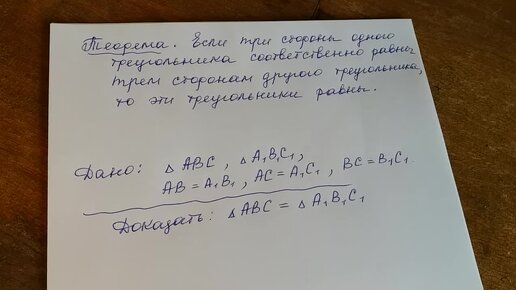 Теорема. Если три стороны одного
треугольника соответственно равны
трем сторонам другого треугольника,
то эти треугольники равны.
Дано: △ ABC, △ A₁B₁C₁,
AB = A₁B₁, AC = A₁C₁, BC = B₁C₁.
Доказать: △ ABC = △ A₁B₁C₁